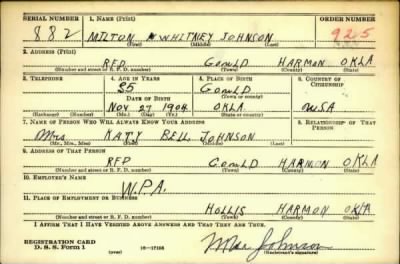 SERIAL NUMBER 1. NAME (Print) ORDER NUMBER
882 MILTON WHITNEY JOHNSON 925
(First) (Middle) (Last)
2. ADDRESS (Print)
RFD Gould HARMON OKLA
(Number and street or R. F. D. number) (Town) (County) (State)
3. TELEPHONE 4. AGE IN YEARS 5. PLACE OF BIRTH 6. COUNTRY OF CITIZENSHIP
35 GOULD
DATE OF BIRTH
NOV 27 1904 OKLA USA
(Exchange) (Number) (Mo.) (Day) (Yr.) (State or country)
7. NAME OF PERSON WHO WILL ALWAYS KNOW YOUR ADDRESS 8. RELATIONSHIP OF THAT PERSON
Mrs KATY BELL JOHNSON
(Mr., Mrs., Miss) (First) (Middle) (Last)
9. ADDRESS OF THAT PERSON
RFD GOULD HARMON OKLA
(Number and street or R. F. D. number) (Town) (County) (State)
10. EMPLOYER'S NAME
W.P.A.
11. PLACE OF EMPLOYMENT OR BUSINESS
HOLLIS HARMON OKLA
(Number and street or R. F. D. number) (Town) (County) (State)
I AFFIRM THAT I HAVE VERIFIED ABOVE ANSWERS AND THAT THEY ARE TRUE.
REGISTRATION CARD
D. S. S. Form 1 (over) 16-17105 Johnson
(Registrant's signature)